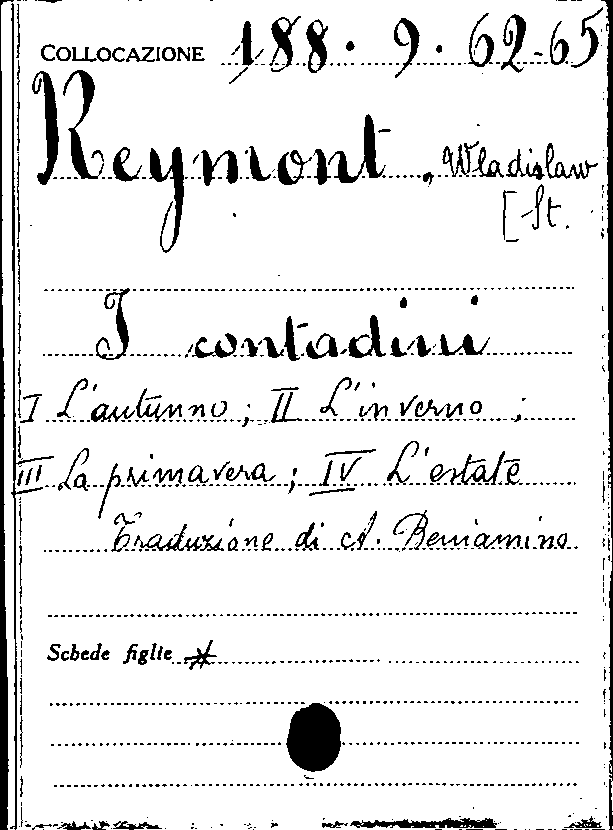 COLLOCAZIONE 188. 9. 62-65
Reymont, Wladislaw
[St.
I contadini
I L'autunno; II L'inverno;
III La primavera; IV L'estate
Traduzione di A. Beniamino
Schede figlie *